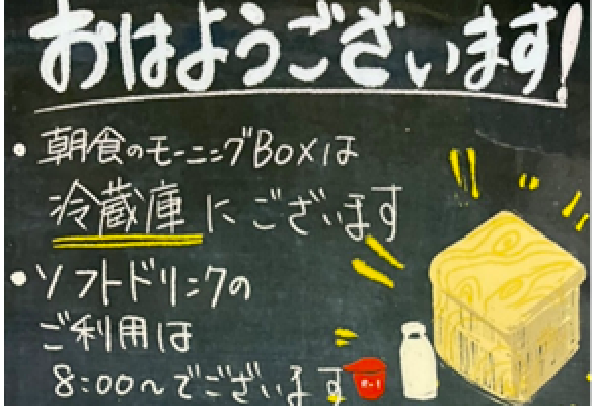 おはようございます!
• 朝食のモーニングBOXは
冷蔵庫にございます
• ソフトドリンクの
ご利用は
8:00〜でございます
R-1